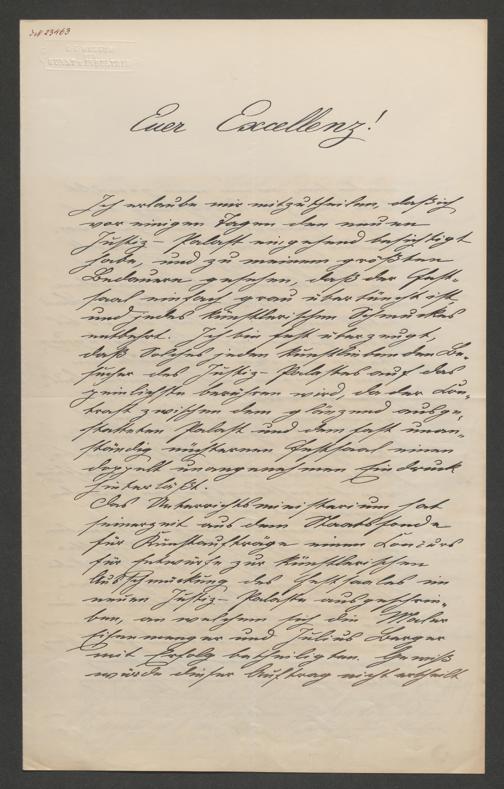 JN 23463
K. K. MUSEUM
KUNST u. INDUSTRIE
Euer Excellenz!
Ich erlaube mir mitzutheilen, daß ich
vor einigen Tagen den neuen
Justiz-Palast eingehend besichtigt
habe, und zu meinem größten
Bedauern gesehen, daß der Fest-
saal einfach grau übertüncht ist,
und jedes künstlerischen Schmuckes
entbehrt. Ich bin fest überzeugt,
daß Solches jeden kunstliebenden Be-
sucher des Justiz-Palastes auf das
peinlichste berühren wird, da der Con-
trast zwischen dem glänzend ausge-
statteten Palast und dem fast unan-
ständig nüchternen Festsaal einen
doppelt unangenehmen Eindruck
hinterläßt.
Das Unterrichtsministerium hat
seinerzeit aus dem Staatsfonde
für Kunstaufträge einen Concurs
für Entwürfe zur künstlerischen
Ausschmückung des Festsaales im
neuen Justiz-Palaste ausgeschrie-
ben, an welchem sich die Maler
Eisenmenger und Julius Berger
mit Erfolg betheiligten. Gewiß
würde dieser Auftrag nicht ertheilt